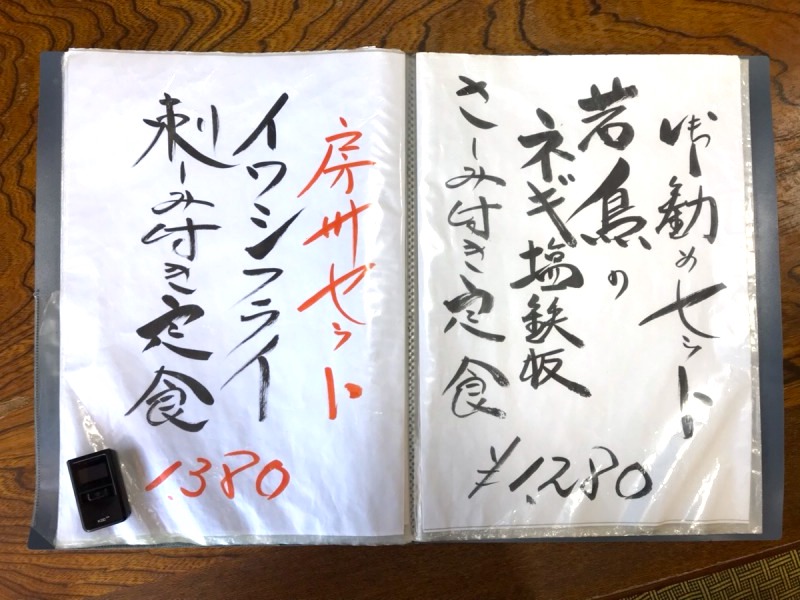 御勧めセット
若鳥の
ネギ塩鉄板
さしみ付き定食
¥1,280
房州セット
イワシフライ
刺しみ付き定食
1,380